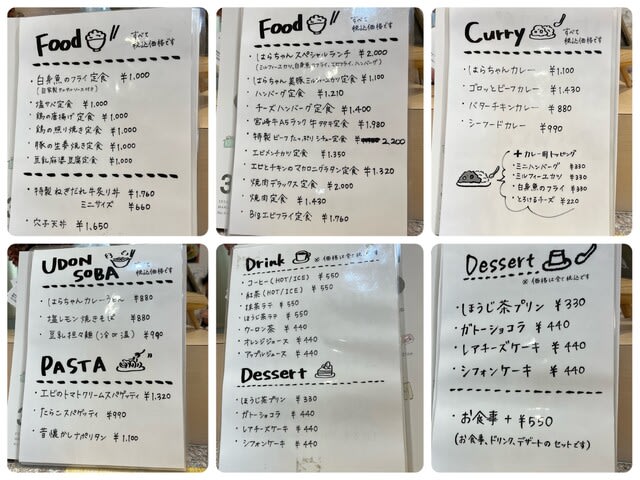 Food
すべて
税込価格です
・白身魚のフライ定食 ¥1,000
(自家製タルタルソース付き)
・塩サバ定食 ¥1,000
・鶏の唐揚げ定食 ¥1,000
・鶏の照り焼き定食 ¥1,000
・豚の生姜焼き定食 ¥1,000
・豆乳麻婆豆腐定食 ¥1,000
・特製ねぎだれ牛炙り丼 ¥1,760
ミニサイズ ¥660
・穴子天丼 ¥1,650
Food
すべて
税込価格です
・はらちゃんスペシャルランチ ¥2,000
(ミルフィーユカツ、白身魚フライ、エビフライ、ハンバーグ)
・はらちゃん美豚ミルフィーユカツ定食 ¥1,100
・ハンバーグ定食 ¥1,210
・チーズハンバーグ定食 ¥1,400
・宮崎牛A5ランク牛タタキ定食 ¥1,980
・特製ビーフたっぷりシチュー定食 2,200
・エビメンチカツ定食 ¥1,350
・エビとチキンのマカロニグラタン定食 ¥1,320
・焼肉デラックス定食 ¥2,000
・焼肉定食 ¥1,430
・Bigエビフライ定食 ¥1,760
Curry
すべて
税込価格です
・はらちゃんカレー ¥1,100
・ゴロッとビーフカレー ¥1,430
・バターチキンカレー ¥880
・シーフードカレー ¥990
+カレー用トッピング
・ミニハンバーグ ¥330
・ミルフィーユカツ ¥330
・白身魚のフライ ¥330
・とろけるチーズ ¥220
UDON
SOBA
すべて
税込価格です
・はらちゃんカレーうどん ¥880
・塩レモン焼きそば ¥880
・豆乳担々麺(冷or温) ¥990
PASTA
・エビのトマトクリームスパゲッティ ¥1,320
・たらこスパゲッティ ¥990
・昔懐かしナポリタン ¥1,100
Drink
※価格は全て税込です
・コーヒー(HOT/ICE) ¥550
・紅茶(HOT/ICE) ¥550
・抹茶ラテ ¥550
・ほうじ茶ラテ ¥550
・ウーロン茶 ¥440
・オレンジジュース ¥440
・アップルジュース ¥440
Dessert
・ほうじ茶プリン ¥330
・ガトーショコラ ¥440
・レアチーズケーキ ¥440
・シフォンケーキ ¥440
Dessert
※価格は全て税込です
・ほうじ茶プリン ¥330
・ガトーショコラ ¥440
・レアチーズケーキ ¥440
・シフォンケーキ ¥440
・お食事+¥550
(お食事、ドリンク、デザートのセットです)